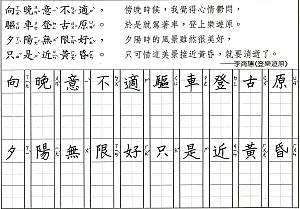 向晚意不適，
驅車登古原。
夕陽無限好，
只是近黃昏。
傍晚時候，我覺得心情鬱悶，
於是就駕著車，登上樂遊原。
夕陽時的風景雖然很美好，
只可惜這美景接近黃昏，就要消逝了。
——李商隱《登樂遊原》
向晚意不適驅車登古原
夕陽無限好只是近黃昏